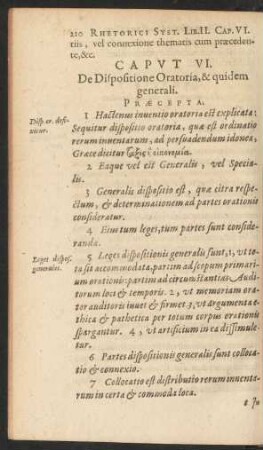 210 RHETORICI SYST. LIB. II. CAP. VI.
tiis, vel connexione thematis cum præceden-
te, &c.
CAPVT VI.
De Dispositione Oratoria, & quidem
generali.
PRÆCEPTA.
Disp. or. defi-
nitur.
1 Hactenus inventio oratoria est explicata:
Sequitur dispositio oratoria, quæ est ordinatio
rerum inventarum, ad persuadendum idonea,
Græce dicitur τάξις & οἰκονομία.
2 Eaque vel est Generalis, vel Specia-
lis.
3 Generalis dispositio est, quæ citra respe-
ctum, & determinationem ad partes orationis
consideratur.
4 Eius tum leges, tum partes sunt conside-
randæ.
Leges dispos.
generales.
5 Leges dispositionis generalis sunt, 1, vt to-
ta sit accommodata partim ad scopum primari-
um orationis: partim ad circumstantias, Audi-
torum loci & temporis. 2, vt memoriam orato-
ris & auditoris iuvet & firmet. 3, vt argumenta e-
thica & pathetica per totum corpus orationis
spargantur. 4, vt artificium in ea dissimule-
tur.
6 Partes dispositionis generalis sunt colloca-
tio & connexio.
7 Collocatio est distributio rerum inventa-
rum in certa & commoda loca.